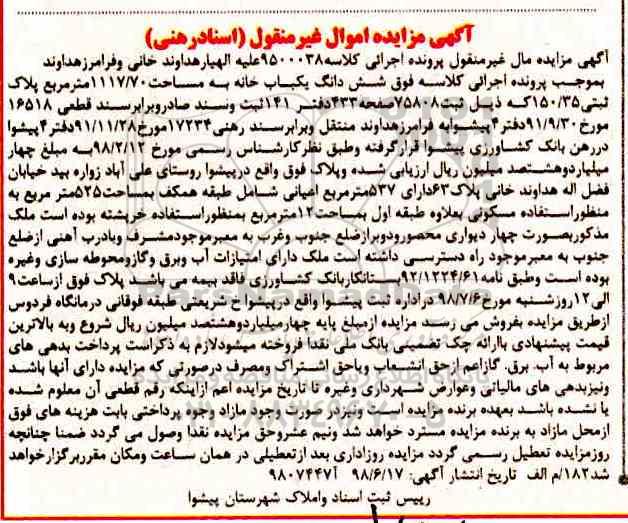 آگهی مزایده اموال غیرمنقول (اسنادرهنی)
آگهی مزایده مال غیرمنقول پرونده اجرائی کلاسه۹۵۰۰۰۳۸علیه الهیارهداوند خانی وفرامرزهداوند
بموجب پرونده اجرائی کلاسه فوق شش دانگ یکباب خانه به مساحت۱۱۱۷/۷۰مترمربع پلاک
ثبتی۱۵۰/۳۵که ذیل ثبت۷۵۸۰۸صفحه۴۳۳دفتر ۱۴۱ثبت وسند صادروبرابرسند قطعی ۱۶۵۱۸
مورخ۹۱/۹/۳۰دفتر۴پیشوابه فرامرزهداوند منتقل وبرابرسند رهنی۱۷۲۳۴مورخ۹۱/۱۱/۲۸دفتر۴پیشوا
دررهن بانک کشاورزی پیشوا قرارگرفته وطبق نظرکارشناس رسمی مورخ ۹۸/۲/۱۲به مبلغ چهار
میلیاردوهشتصد میلیون ریال ارزیابی شده وپلاک فوق واقع درپیشوا روستای علی آباد زواره بید خیابان
فضل اله هداوند خانی پلاک۶۳دارای ۵۳۷مترمربع اعیانی شامل طبقه همکف بمساحت۵۲۵متر مربع به
منظوراستفاده مسکونی بعلاوه طبقه اول بمساحت۱۲مترمربع بمنظوراستفاده خرپشته بوده است ملک
مذکوربصورت چهار دیواری محصورودوبرازضلع جنوب وغرب به معبرموجودمشرف وبادرب آهنی ازضلع
جنوب به معبرموجود راه دسترسی داشته است ملک دارای امتیازات آب وبرق وگازومحوطه سازی وغیره
بوده است وطبق نامه۹۲/۱۲۲۴/۶۱بستانکاربانک کشاورزی فاقد بیمه می باشد پلاک فوق ازساعت۹
الی۱۲روزشنبه مورخ۹۸/۷/۶ دراداره ثبت پیشوا واقع درپیشوا خ شریعتی طبقه فوقانی درمانگاه فردوس
ازطریق مزایده بفروش می رسد مزایده ازمبلغ پایه چهارمیلیاردوهشتصد میلیون ریال شروع وبه بالاترین
قیمت پیشنهادی باارائه چک تضمینی بانک ملی نقدا فروخته میشودلازم به ذکراست پرداخت بدهی های
مربوط به آب. برق. گازاعم ازحق انشعاب ویاحق اشتراک ومصرف درصورتی که مزایده دارای آنها باشد
ونیزبدهی های مالیاتی وعوارض شهرداری وغیره تا تاریخ مزایده اعم ازاینکه رقم قطعی آن معلوم شده
یا نشده باشد بعهده برنده مزایده است ونیزدر صورت وجود مازاد وجوه پرداختی بابت هزینه های فوق
ازمحل مازاد به برنده مزایده مسترد خواهد شد ونیم عشروحق مزایده نقدا وصول می گردد ضمنا چنانچه
روزمزایده تعطیل رسمی گردد مزایده روزاداری بعد ازتعطیلی در همان ساعت ومکان مقرربرگزارخواهد
شد۱۸۲/م الف تاریخ انتشار آگهی: ۹۸/۶/۱۷ آ۹۸۰۷۴۴۷
رییس ثبت اسناد واملاک شهرستان پیشوا